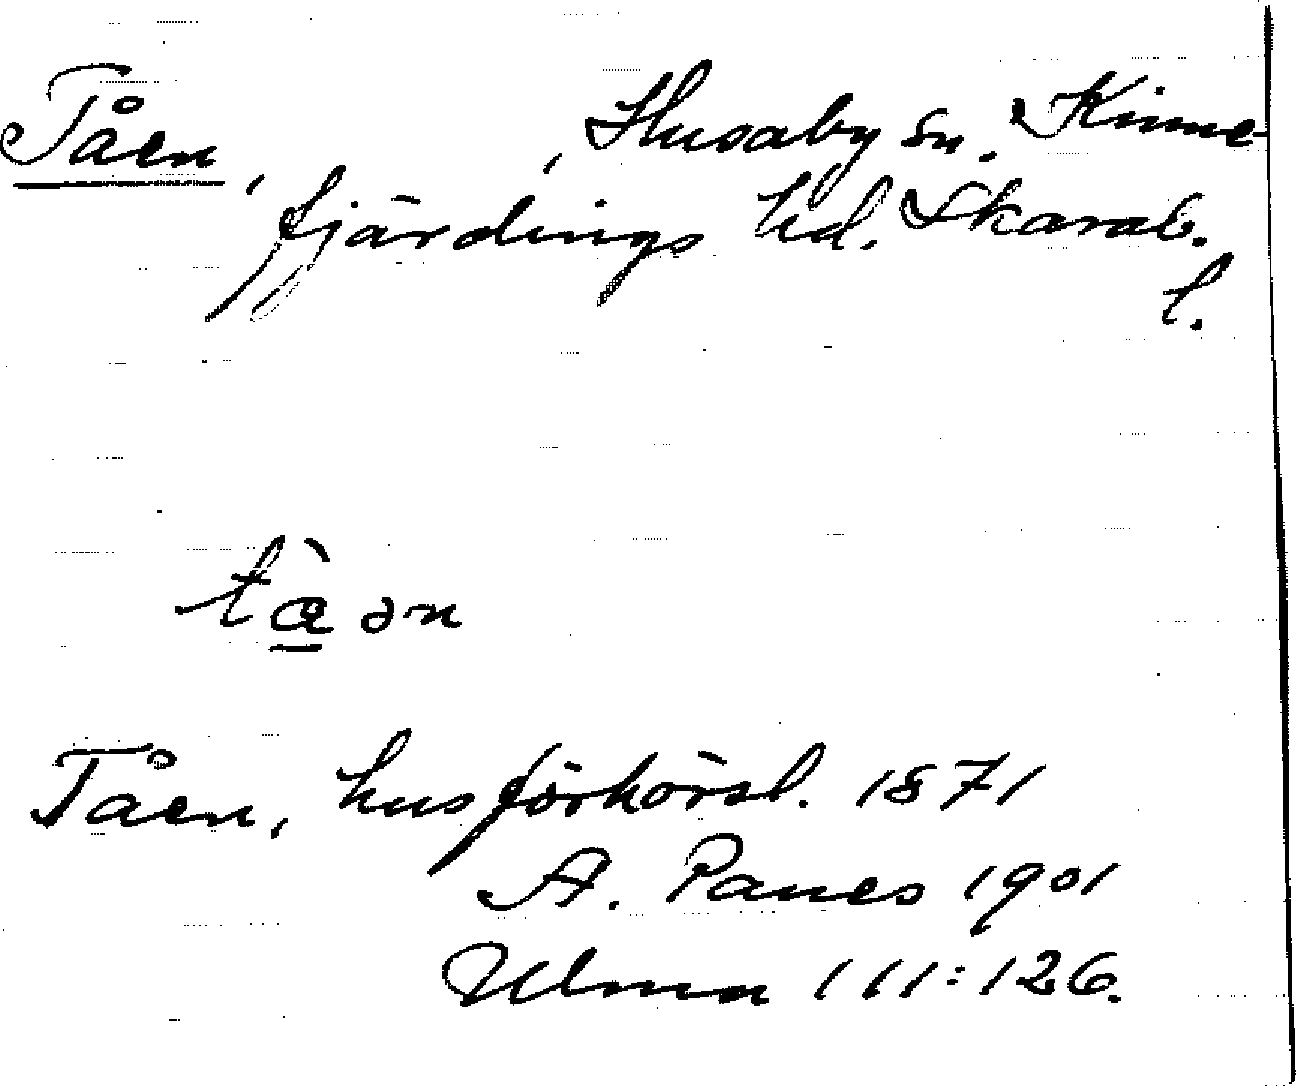 Tåen, , Husaby sn. Kinne-
fjärdings hd. Skarab.
l.
tàən
Tåen, husförhörsl. 1871
A. Panes 1901
Ulma 111:126.